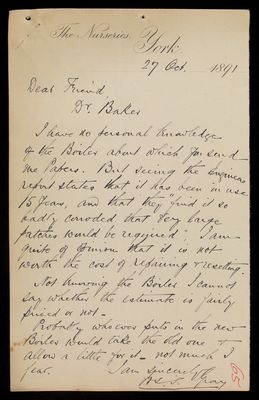 The Nurseries,
York.
27 Oct. 1891
Dear Friend
Dr. Baker
I have no personal knowledge
of the Boiler about which you send
me Papers. But seeing the Engineers
report states that it has been in use
15 years, and that they "find it so
badly corroded that very large
patches would be required", I am
quite of opinion that it is not
worth the cost of repairing & resetting.
Not knowing the Boiler I cannot
say whether the estimate is fairly
priced or not -
Probably whoever puts in the new
Boiler would take the old one &
allow a little for it - not much I
fear. I am sincerely
Gray